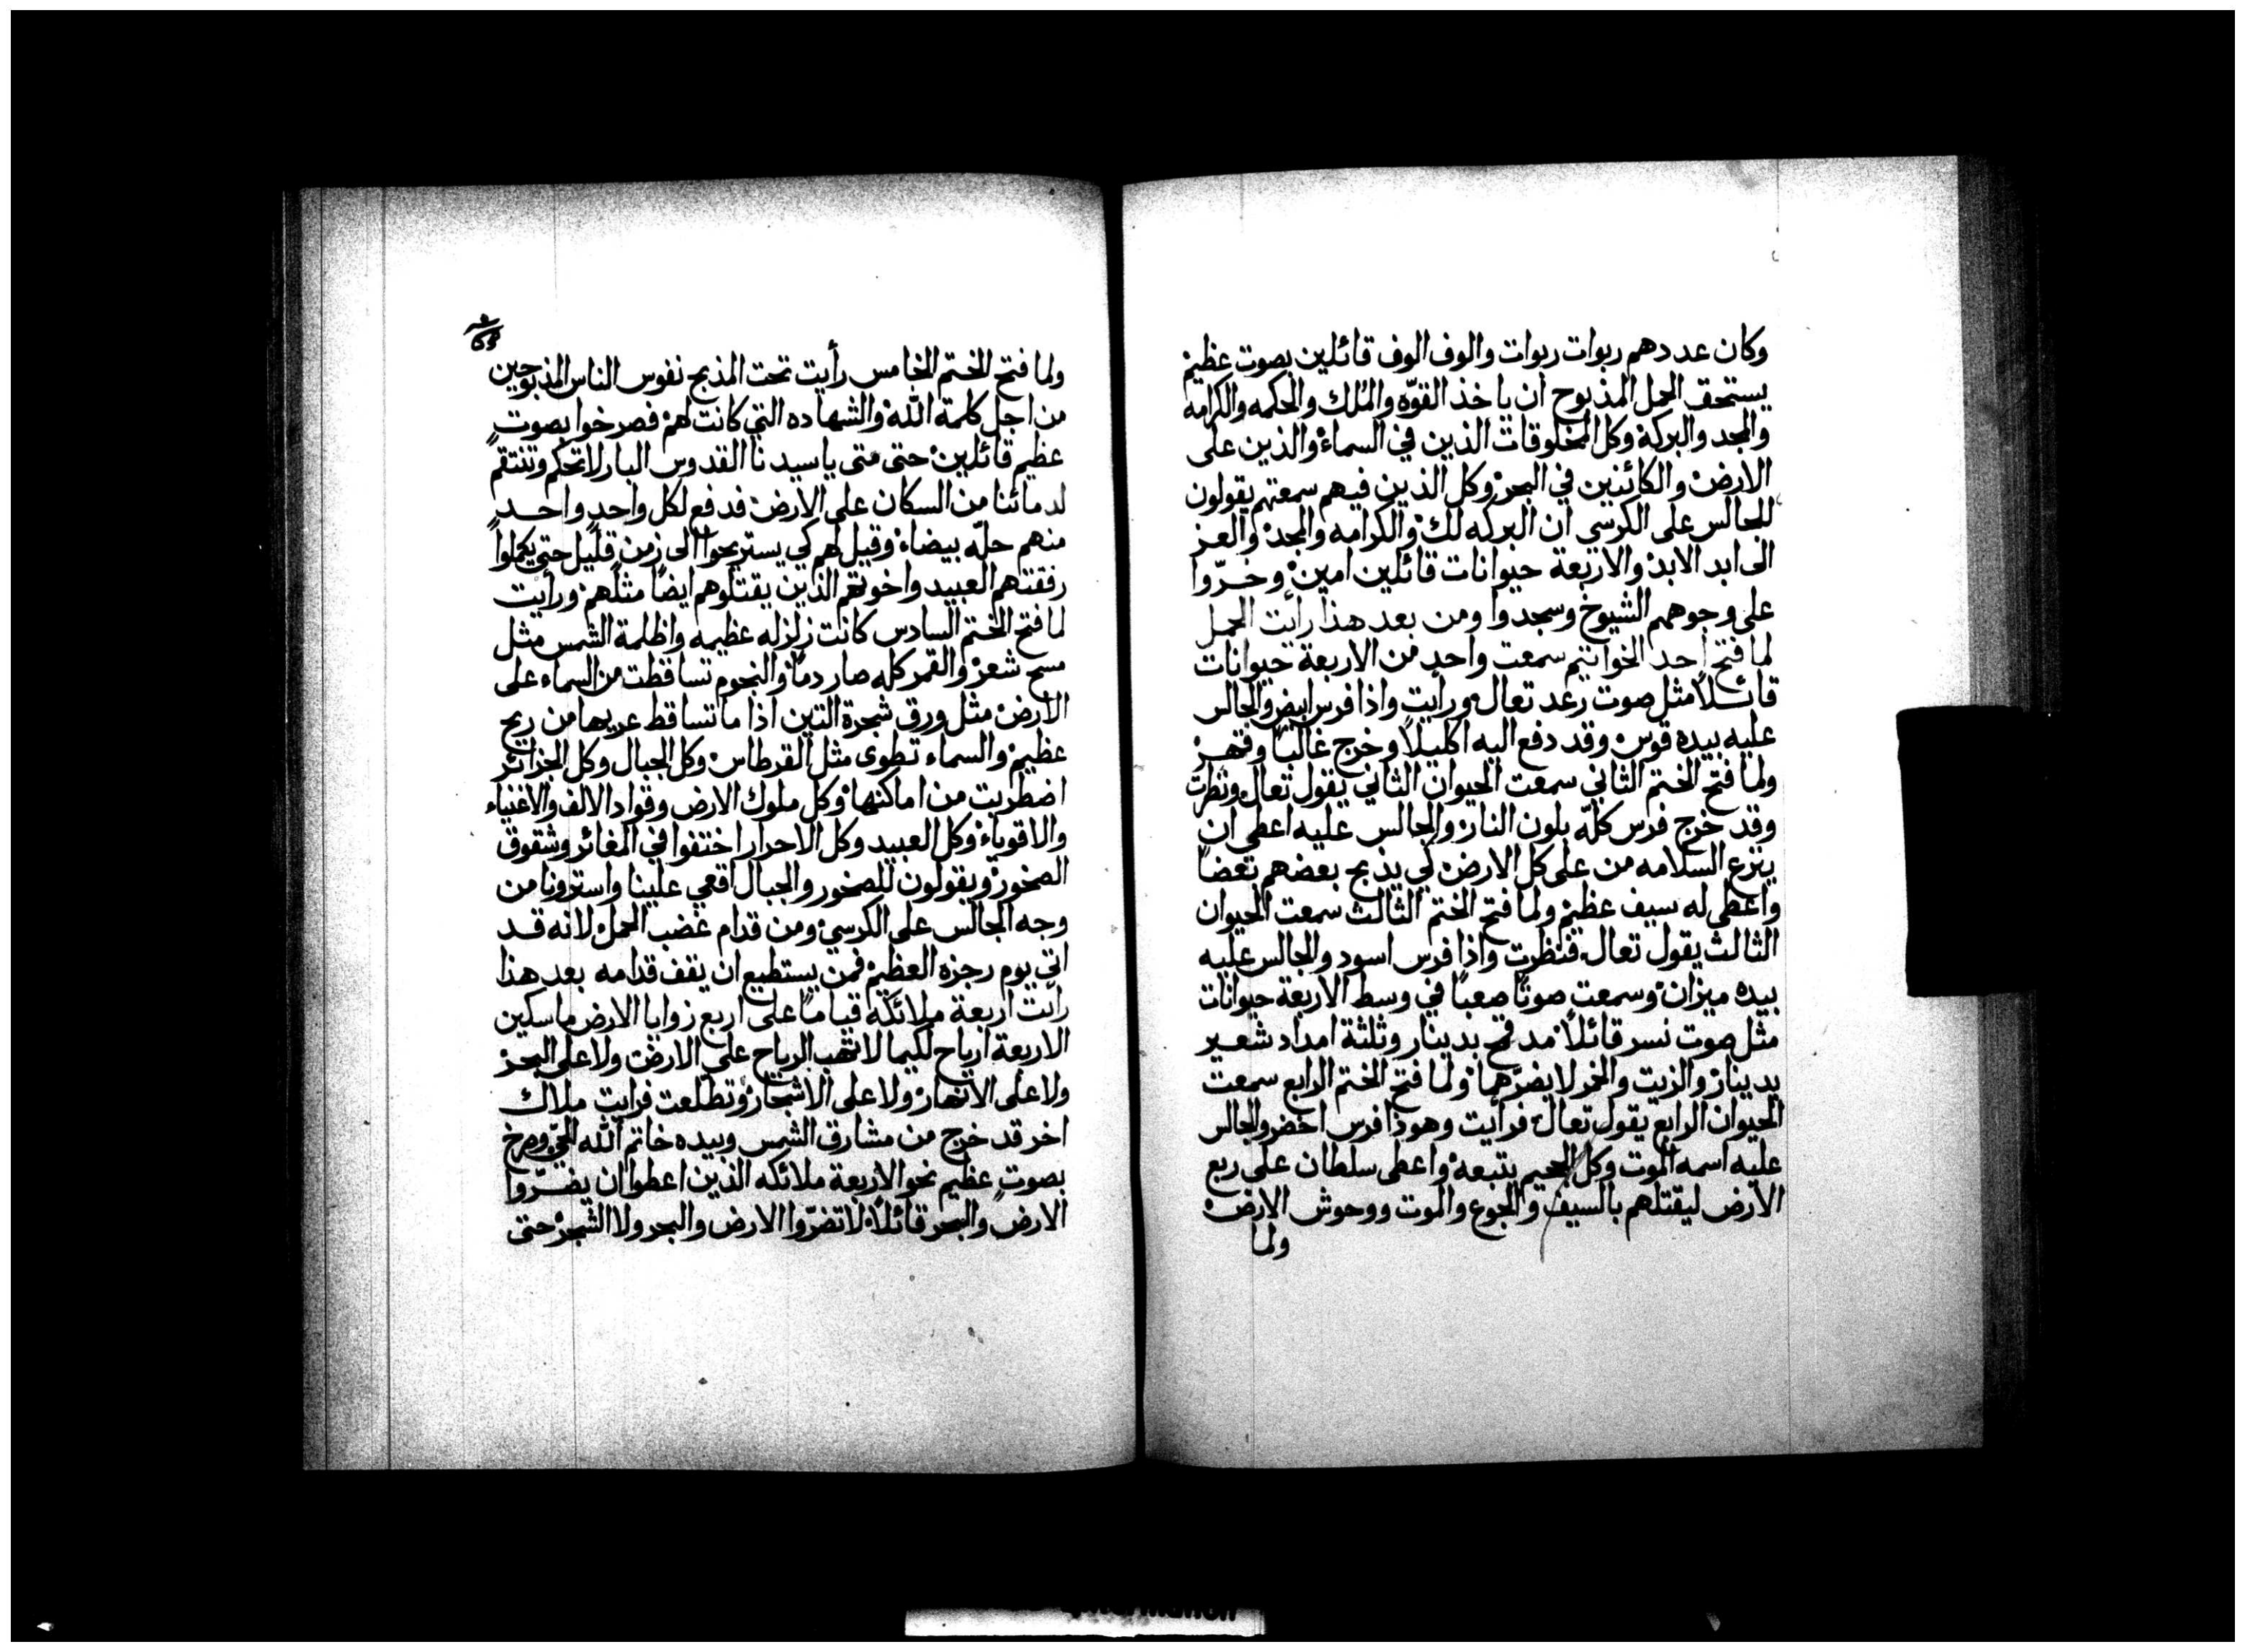 وكان عددهم ربوات ربوات والوف الوف قائلين بصوت عظيم
يستحق الحمل المذبوح ان ياخذ القوّه والمُلك والحكمه والكرامه
والمجد والبركة وكل المخلوقات الذين في السماء والذين على
الارض والكائنين في البحر وكل الذين فيهم سمعتهم يقولون
للجالس على الكرسي ان البركه لك والكرامه والمجد والعز
الى ابد الابد والاربعة حيوانات قائلين امين وخرّوا
على وجوههم الشيوخ وسجدوا ومن بعد هذا رأيت الحمل
لما فتح احد الخواتيم سمعت واحد من الاربعة حيوانات
قائلاً مثل صوت رعد تعال ورأيت واذا فرس ابيض والجالس
عليه بيده قوس وقد دفع اليه اكليلاً وخرج غالباً وقهر
ولما فتح الختم الثاني سمعت الحيوان الثاني يقول تعال ونظرت
وقد خرج فرس كلّه بلون النار والجالس عليه اعطي ان
ينزع السلامه من على كل الارض كي يذبح بعضهم بعضاً
واعطي له سيف عظيم ولما فتح الختم الثالث سمعت الحيوان
الثالث يقول تعال فنظرت واذا فرس اسود والجالس عليه
بيده ميزان وسمعت صوتاً صعباً في وسط الاربعة حيوانات
مثل صوت نسر قائلاً مد قمح بدينار وثلثة امداد شعير
بدينار والزيت والخمر لا يضرهما ولما فتح الختم الرابع سمعت
الحيوان الرابع يقول تعال فرأيت وهوذا فرس اخضر والجالس
عليه اسمه الموت وكل الجحيم يتبعه واعطى سلطان على ربع
الارض ليقتلهم بالسيف والجوع والموت ووحوش الارض
ولما
ولما فتح الختم الخامس رأيت تحت المذبح نفوس الناس المذبوحين
من اجل كلمة الله والشهاده التي كانت لهم فصرخوا بصوت
عظيم قائلين حتى متى ياسيدنا القدوس البار لا تحكم وتنتقم
لدمائنا من السكان على الارض فدفع لكل واحدٍ واحد
منهم حلّه بيضاء وقيل لهم كي يستريحوا الى زمن قليل حتى يكملوا
رفقتهم العبيد واخوتهم الذين يقتلوهم ايضاً مثلهم ورأيت
لما فتح الختم السادس كانت زلزله عظيمه واظلمة الشمس مثل
مسح شعر والقمر كله صار دماً والنجوم تساقطت من السماء على
الارض مثل ورق شجرة التين اذا ما تساقط عريها من ريح
عظيم والسماء تطوى مثل القرطاس وكل الجبال وكل الجزائر
اضطربت من اماكنها وكل ملوك الارض وقواد الالف والاغنياء
والاقوياء وكل العبيد وكل الاحرار اختفوا في المغائر وشقوق
الصخور ويقولون للصخور والجبال اقعي علينا واسترونا من
وجه الجالس على الكرسي ومن قدام غضب الحمل لانه قد
اتى يوم رجزه العظيم فمن يستطيع ان يقف قدامه بعد هذا
رأيت اربعة ملائكه قياماً على اربع زوايا الارض ماسكين
الاربعة ارياح لكيما لا تهب الرياح على الارض ولا على البحر
ولا على الانهار ولا على الاشجار وتطلّعت فرايت ملاك
اخر قد خرج من مشارق الشمس وبيده خاتم الله الحيّ وصرخ
بصوتٍ عظيم نحو الاربعة ملائكه الذين اعطوا ان يضرّوا
الارض والبحر قائلاً لا تضرّوا الارض والبحر ولا الشجر حتى